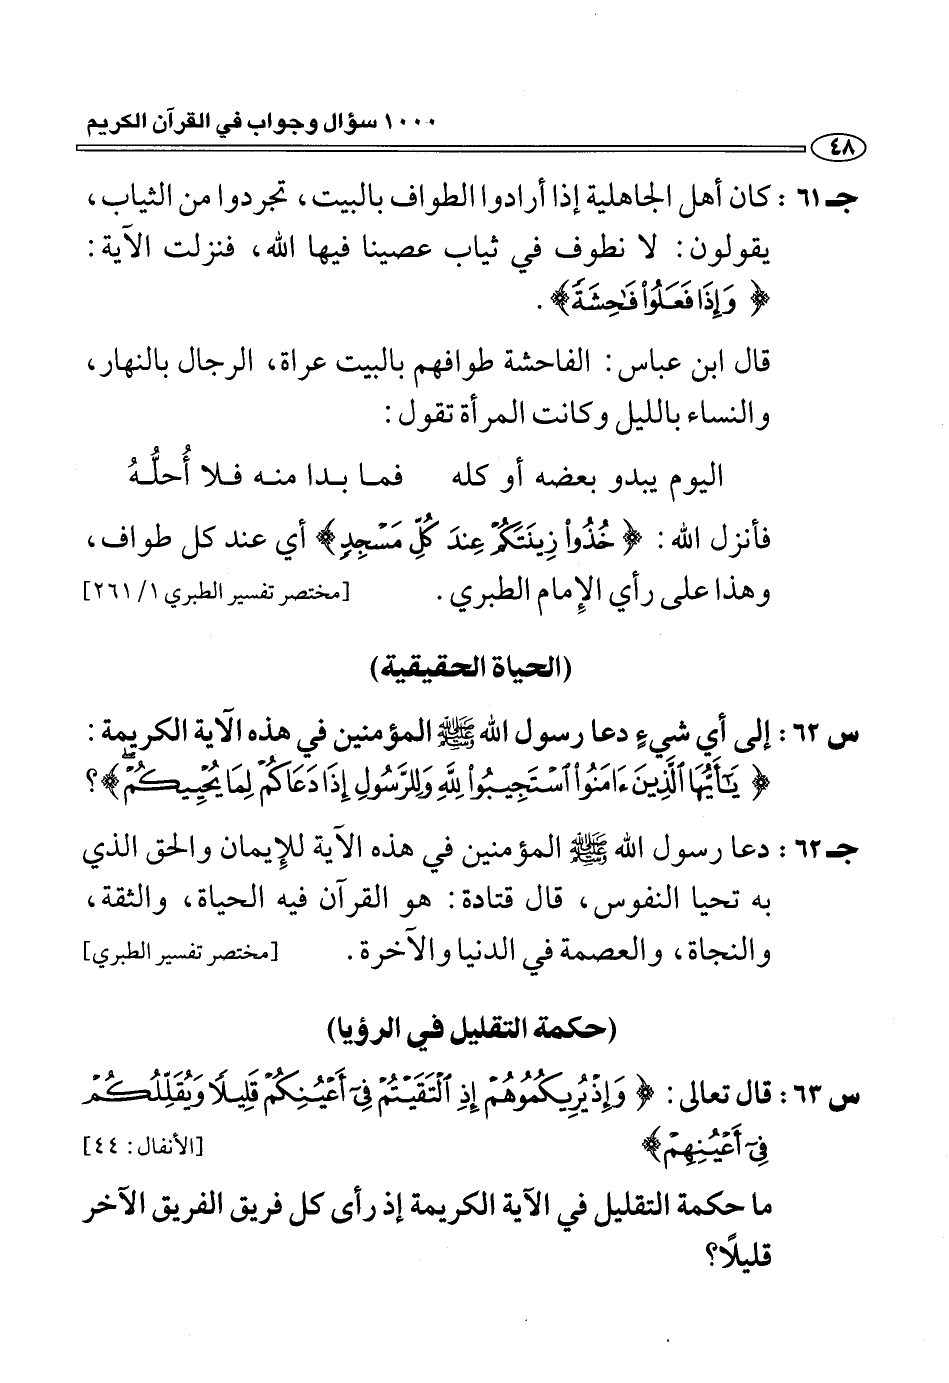 ١٠٠٠ سؤال وجواب في القرآن الكريم
٤٨
جـ٦١ : كان أهل الجاهلية إذا أرادوا الطواف بالبيت، تجردوا من الثياب،
يقولون: لا نطوف في ثياب عصينا فيها الله، فنزلت الآية:
﴿ وَإِذَا فَعَلُوا۟ فَٰحِشَةً﴾ .
قال ابن عباس: الفاحشة طوافهم بالبيت عراة، الرجال بالنهار،
والنساء بالليل وكانت المرأة تقول:
اليوم يبدو بعضه أو كله فما بدا منه فلا أُحلُّهُ
فأنزل الله: ﴿ خُذُوا۟ زِينَتَكُمْ عِندَ كُلِّ مَسْجِدٍ﴾ أي عند كل طواف،
وهذا على رأي الإمام الطبري . [مختصر تفسير الطبري ١/ ٢٦١]
(الحياة الحقيقية)
س ٦٢ : إلى أي شيءٍ دعا رسول الله ﷺ المؤمنين في هذه الآية الكريمة :
﴿ يَٰٓأَيُّهَا ٱلَّذِينَ ءَامَنُوا۟ ٱسْتَجِيبُوا۟ لِلَّهِ وَلِلرَّسُولِ إِذَا دَعَاكُمْ لِمَا يُحْيِيكُمْ ۖ﴾؟
جـ٦٢ : دعا رسول الله ﷺ المؤمنين في هذه الآية للإيمان والحق الذي
به تحيا النفوس، قال قتادة: هو القرآن فيه الحياة، والثقة،
والنجاة، والعصمة في الدنيا والآخرة . [مختصر تفسير الطبري]
(حكمة التقليل في الرؤيا)
س ٦٣ : قال تعالى: ﴿ وَإِذْ يُرِيكُمُوهُمْ إِذِ ٱلْتَقَيْتُمْ فِىٓ أَعْيُنِكُمْ قَلِيلًا وَيُقَلِّلُكُمْ
فِىٓ أَعْيُنِهِمْ﴾ [الأنفال: ٤٤]
ما حكمة التقليل في الآية الكريمة إذ رأى كل فريق الفريق الآخر
قليلًا؟